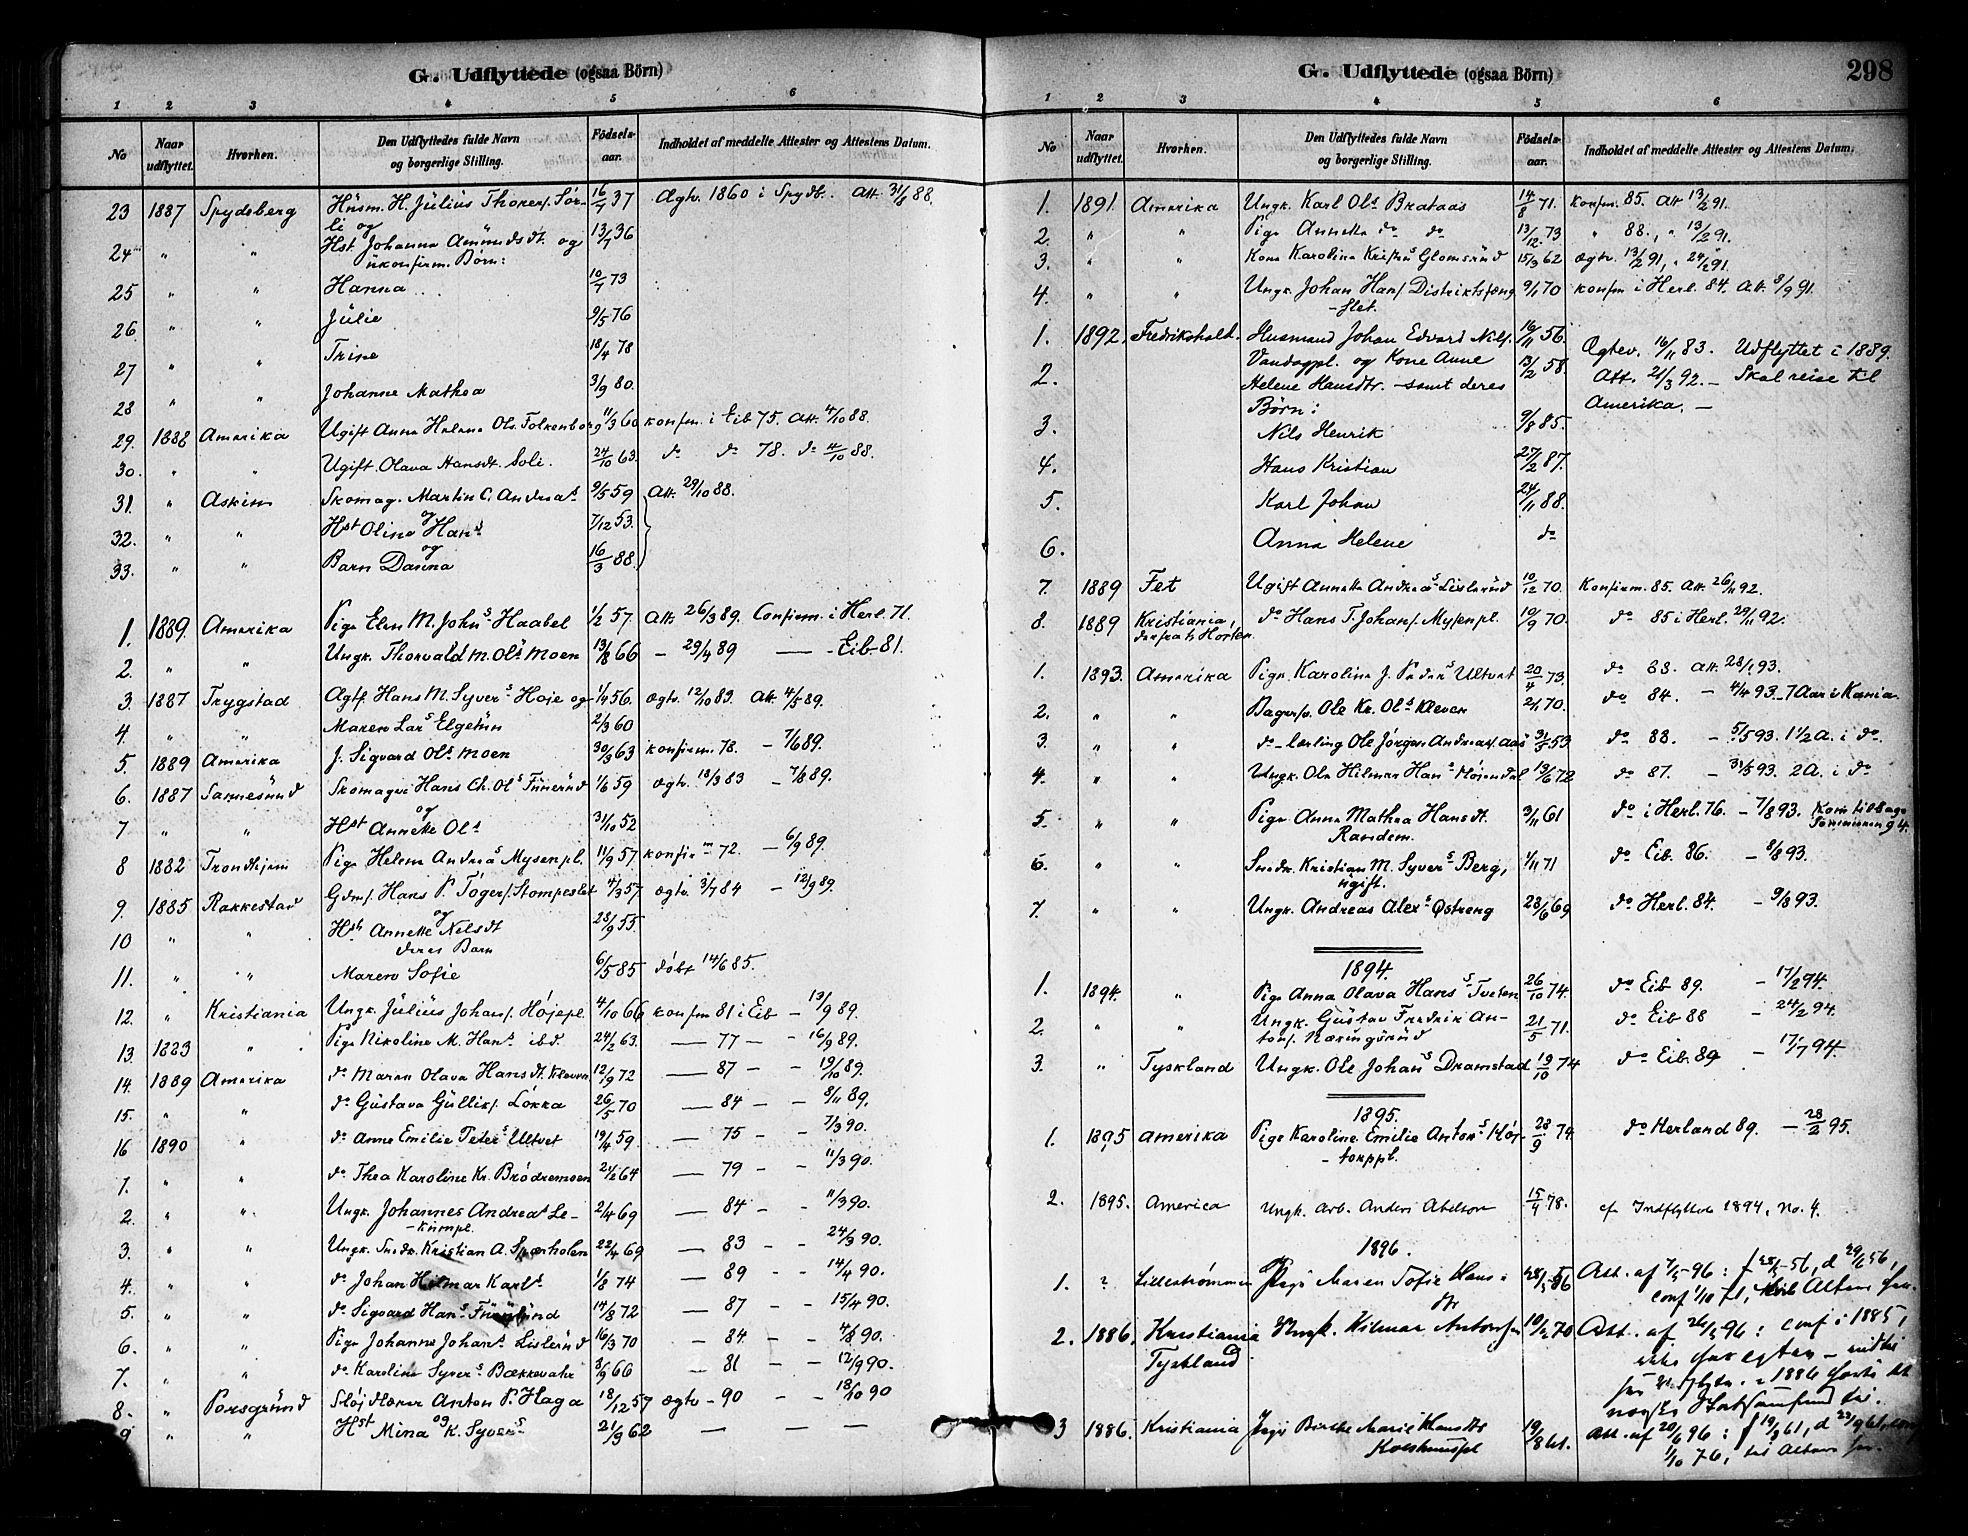 G. Udflyttede (ogsaa Börn)
1 2 3 4 5 6
No Naar udflyttet. Hvorhen. Den Udflyttedes fulde Navn og borgerlige Stilling. Födsels-aar. Indholdet af meddelte Attester og Attestens Datum.
23 1887 Spydeberg Husm. H. Julius Thorers. Sør- 16/7 37 Ægtv. 1860 i Spydb. Att. 31/8 88.
li og
24 " " Hst. Johanna Amundsdt. og 13/7 36
ukonfirm. Børn:
25 " " Hanna 10/7 73
26. " " Julie 9/5 76
27 " " Trine 18/4 78
28 " " Johanne Mathea 3/9 80.
29. 1888 Amerika Ugift Anna Helene Ols. Folkenborg 11/3 60 konfirm. i Eib 75. Att. 4/10 88.
30. " " Ugift. Olava Hansdt. Soli. 24/10 63. do do 78. do 4/10 88.
31. " Askim Skomag. Martin C. Andreas 9/5 59 Att. 29/10 88.
og
32. " " Hst Olina Hans 7/12 53.
og
33. " " Barn Danna 16/3 88.
1. 1889. Amerika Pige Elen M. Johns Haabel 1/2 57 Att. 26/3 89. Confirm. i Herl. 71.
2. " " Ungk. Thorvald M. Ols Moen 13/8 66 - 29/4 89 — - Eib. 81.
3. 1887 Trygstad Ægtf. Hans M. Syvers Høie og 1/4 56. ægtv. 12/10 83. Att. 4/5 89.
4. " " Maren Lars Elgetun 2/3 60
5. 1889 Amerika J. Sigvard Ols Moen 30/3 63 konfirm. 78. - 7/6 89.
6. 1887 Sarpsund Skomager Hans Ch. Ols Fuuerud 1/6 59 ægtv. 18/3 83 - 7/8 89.
og
7 " " Hst Annette Ols 31/10 52
8 1882 Trondhjem Pige Helene Andreas Mysenpl. 11/9 57 konfirm 72. - 6/9 89.
9. 1885 Rakkestad Gdm. Hans P. Tøgers. Stompeslet 4/3 57 ægtv. 3/7 84 - 12/9 89.
og
10 " " Hst Annette Nilsdt 28/9 55.
deres Barn
11. " " Maren Sofie 6/5 85 døbt 14/6 85.
12. " Kristiania Ungk. Julius Johans. Høiepl. 4/10 66 konfirm 81 i Eib - 13/9 89.
13. 1883 " Pige Nikoline M. Hans ibd. 24/2 63. — 77 - - 16/9 89.
14. 1889 Amerika do Maren Olava Hansdt. Kleven 12/9 72 — 87 - - 19/10 89.
15. " " do Gustava Gulliks. Løkka 26/5 70 — 84 - - 8/11 89.
16 1890 " do Anne Emilie Peters Ultvet 19/4 59. — 75 - - 7/3 90.
1. " " do Thea Karoline Kr. Brødremoen 21/2 64 — 79 - - 11/3 90.
2. " " Ungk. Johannes Andreas Le- 2/4 69 — 84 - - 11/3 90.
kumpl.
3. " " Ungk. Snedk. Kristian A. Spærholen 22/4 69 — 83 - - 24/3 90.
4. " " do Johan Hilmar Karls 1/8 74 — 89 - - 14/4 90.
5. " " do Sigvard Hans 14/8 72 — 87 - - 15/4 90.
6. " " Pige Johanne Johans Lislerud 16/3 70 — 84 - - 4/8 90.
7. " " do Karoline Syvers Bækkevahr 3/9 66 — 81 - - 12/9 90.
8. " Porsgrund Sløjdlærer Anton P. Haga 18/12 57 ægtv - 90 - - 18/10 90
9 " " Hst Mina og K. Syvers 21/9 62 — — —
G. Udflyttede (ogsaa Börn) 298
1 2 3 4 5 6
No Naar udflyttet. Hvorhen. Den Udflyttedes fulde Navn og borgerlige Stilling. Födsels-aar. Indholdet af meddelte Attester og Attestens Datum.
1. 1891. Amerika Ungk. Karl Ols Brataas 14/8 71. konfirm. 85. Att 13/2 91.
2. " " Pige Annette do do 13/12 73 " 88., " 13/2 91.
3. " " Kone Karoline Kristns Glomsrud 15/3 62 ægtv. 13/2 91, " 24/2 91.
4. " " Ungk. Johan Hans. Distriktsfæng- 9/1 70 konfirm i Herl. 84. Att. 8/9 91.
slet.
1. 1892. Frederikshald. Husmand Johan Edvard Nils. 16/11 56. Ægtev. 16/11 83. Udflyttet i 1889.
2. Vandugpl. og Kone Anne 13/2 58. Att. 21/3 92. - Skal reise til
Helene Hansdtr. - samt deres Amerika. -
Børn:
3. Nils Henrik 9/8 85.
4. Hans Kristian 27/2 87.
5. Karl Johan 24/11 88.
6. Anna Helene do
7. 1889 Fet Ugift Annette Andreas Lislerud 10/12 70. Konfirm. 85. Att. 26/11 92.
8. 1889 Kristiania, do Hans T. Johans. Mysenpl. 10/9 70. do 85 i Herl. 29/11 92.
derfra ts Horten.
1. 1893. Amerika Pige Karoline J. Peders Ultvet 20/4 73. do 88. Att. 28/1 93.
2. " " Bagersv. Ole Kr. Ols Kleven 2/1 70. do 84. - 4/4 93. 7 Aar i Kania
3. " " do - Lærling Ole Jørgen Andreass. Aas 31/5 53 do 88. - 5/5 93. 1 1/2 A. i do.
4. " " Ungk. Ole Hilmar Hans Højendal 13/6 72 do 87. - 31/5 93. 2 A. i do
5. " " Pige Anna Mathea Hansdt. 3/11 61 do i Herl. 76. - 7/8 93. Kom tilbage
Randem. Sommeren 94.
6. " " Snedk. Kristian M. Syvers Berg, 1/11 71 do Eib. 86. - 8/8 93.
ugift.
7. " " Ungk. Andreas Alexs Østreng 28/6 69 do Herl. 84. - 9/8 93.
1894.
1. 1894. " Pige Anna Olava Hans Tveten 26/10 74. do Eib 89. - 17/2 94.
2. " " Ungk. Gustav Fredrik An- 21/5 71. do Eib 88 - 24/2 94.
tons. Næringsrud
3. " Tyskland Ungk. Ole Johans Dramstad 19/10 74 do Eib. 89 - 17/7 94.
1895.
1. 1895 Amerika Pige Karoline Emilie Antons Høj- 28/9 74. do Herland 89. - 28/2 95.
torppl.
2. 1895. America Ungk. Arb. Anders Abelson 15/4 78. cf. Indflyttede 1894, No. 4.
1896.
1. ? Lillestrømmen Pige Maren Sofie Hans- 28/5 56 Att. af 7/5 96: f 28/5 56, d 29/6 56,
dtr conf 1/10 71, Altens
2. 1886, Kristiania Ungk. Hilmar Antonsen 10/2 70 Att. af 26/5 96: conf i 1885,
Tyskland ikke før egten - indtil
1886 hørte det
norske Statssamfund til.
3 1886. Kristiania Pige Birthe Marie Hansdtr 19/8 61. Att. af 20/6 96: f 19/8 61, d 29/9 61, conf
1/10 76, til Altens